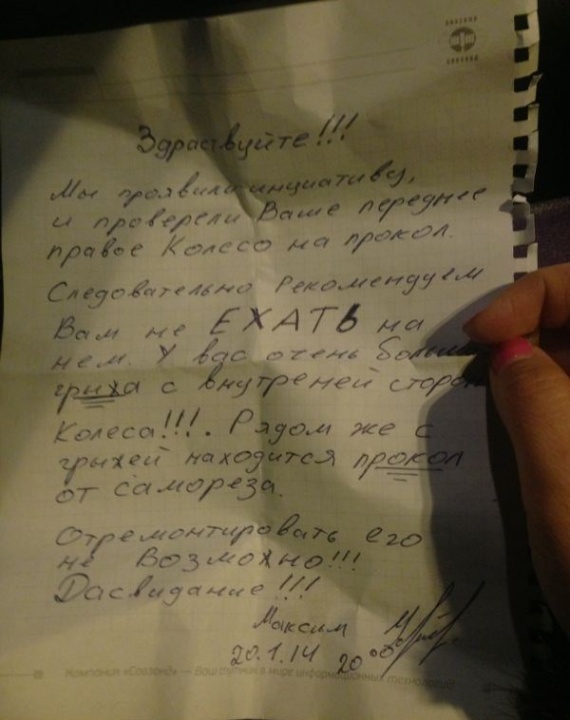 Здраствуйте!!!
Мы проявили инициативу,
и проверели Ваше переднее
правое Колесо на прокол.
Следовательно рекомендуем
Вам не ЕХАТЬ на
нем. У вас очень
грыжа с внутреней
Колеса!!!. Рядом же с
грыжей находится прокол
от самореза.
Отремонтировать его
не Возможно!!!
Дасвидание!!!
Максим
20.1.14 20⁰⁰
Компания «Совзонд» — Ваш спутник в мире информационных технологий